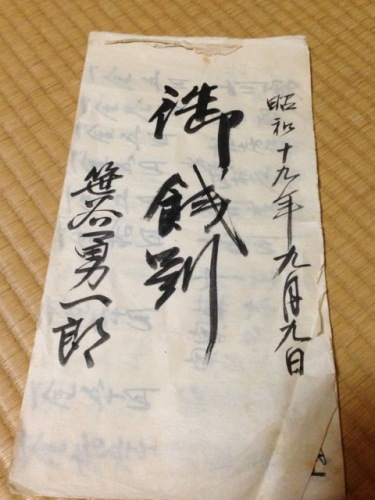 昭和十九年九月九日
御餞別
笹谷勇一郎